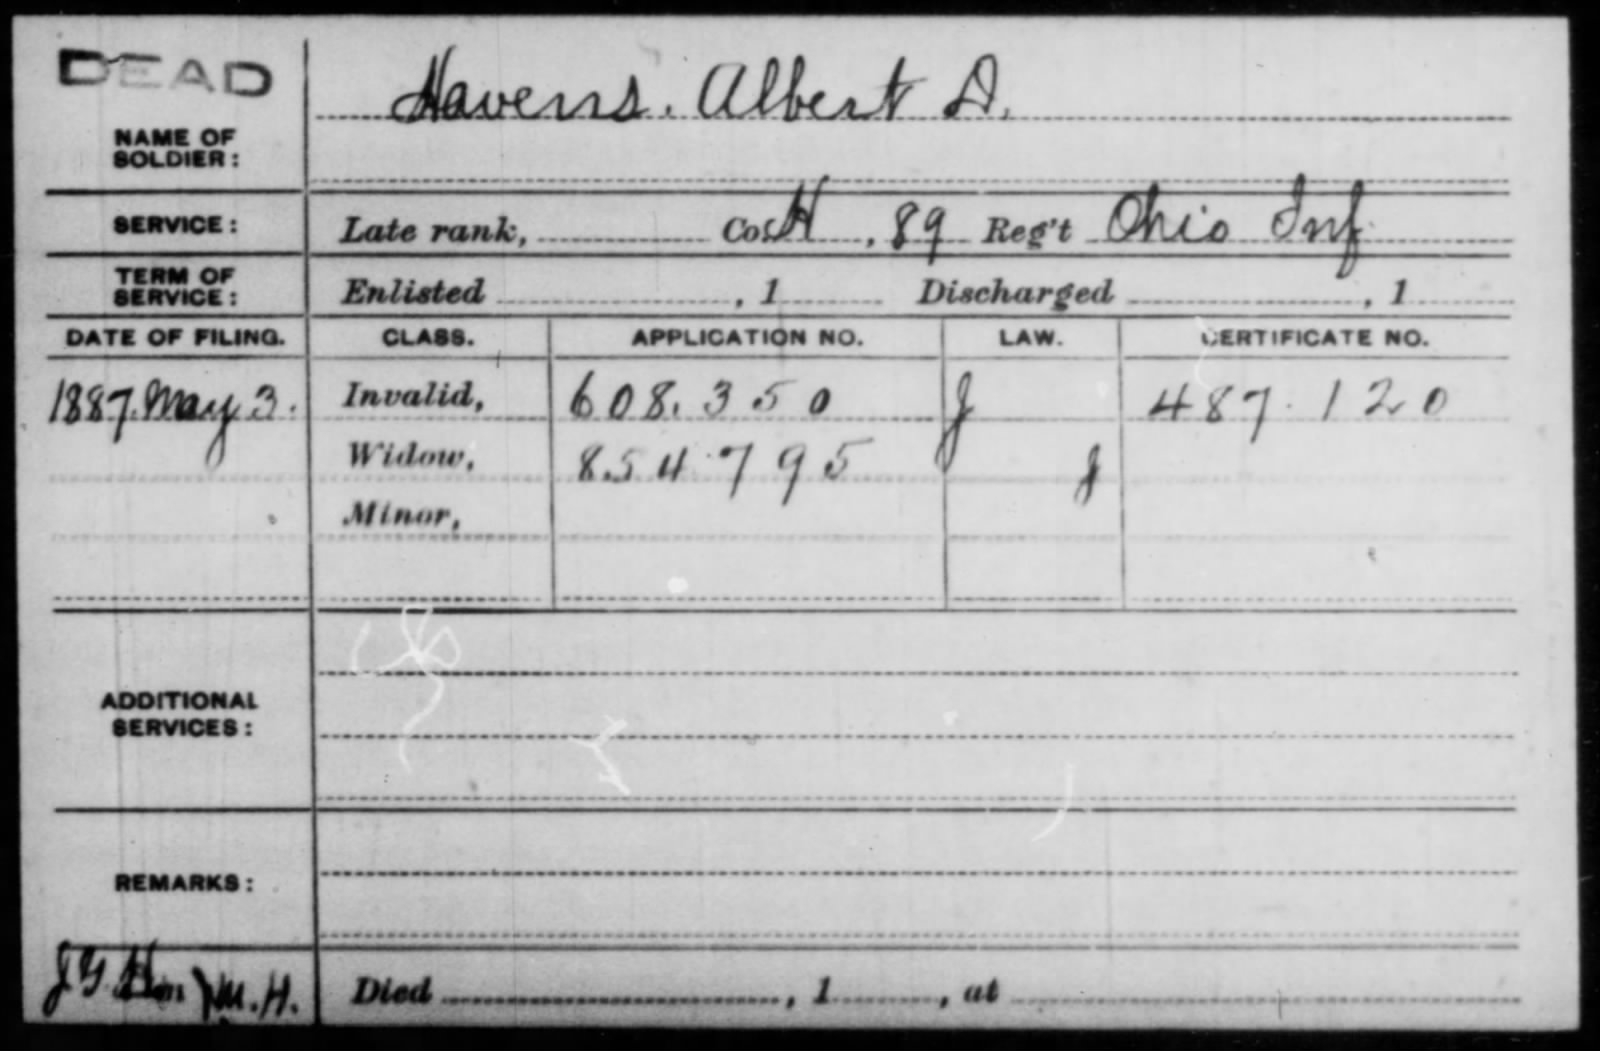 DEAD
NAME OF SOLDIER: Havens. Albert D.
SERVICE: Late rank, Co. H, 89 Reg't Ohio Inf.
TERM OF SERVICE: Enlisted , 1 Discharged , 1
DATE OF FILING. CLASS. APPLICATION NO. LAW. CERTIFICATE NO.
1887. May 3. Invalid, 608.350 J 487.120
Widow, 854.795 J
Minor,
ADDITIONAL SERVICES:
REMARKS:
M.H. Died , 1 , at